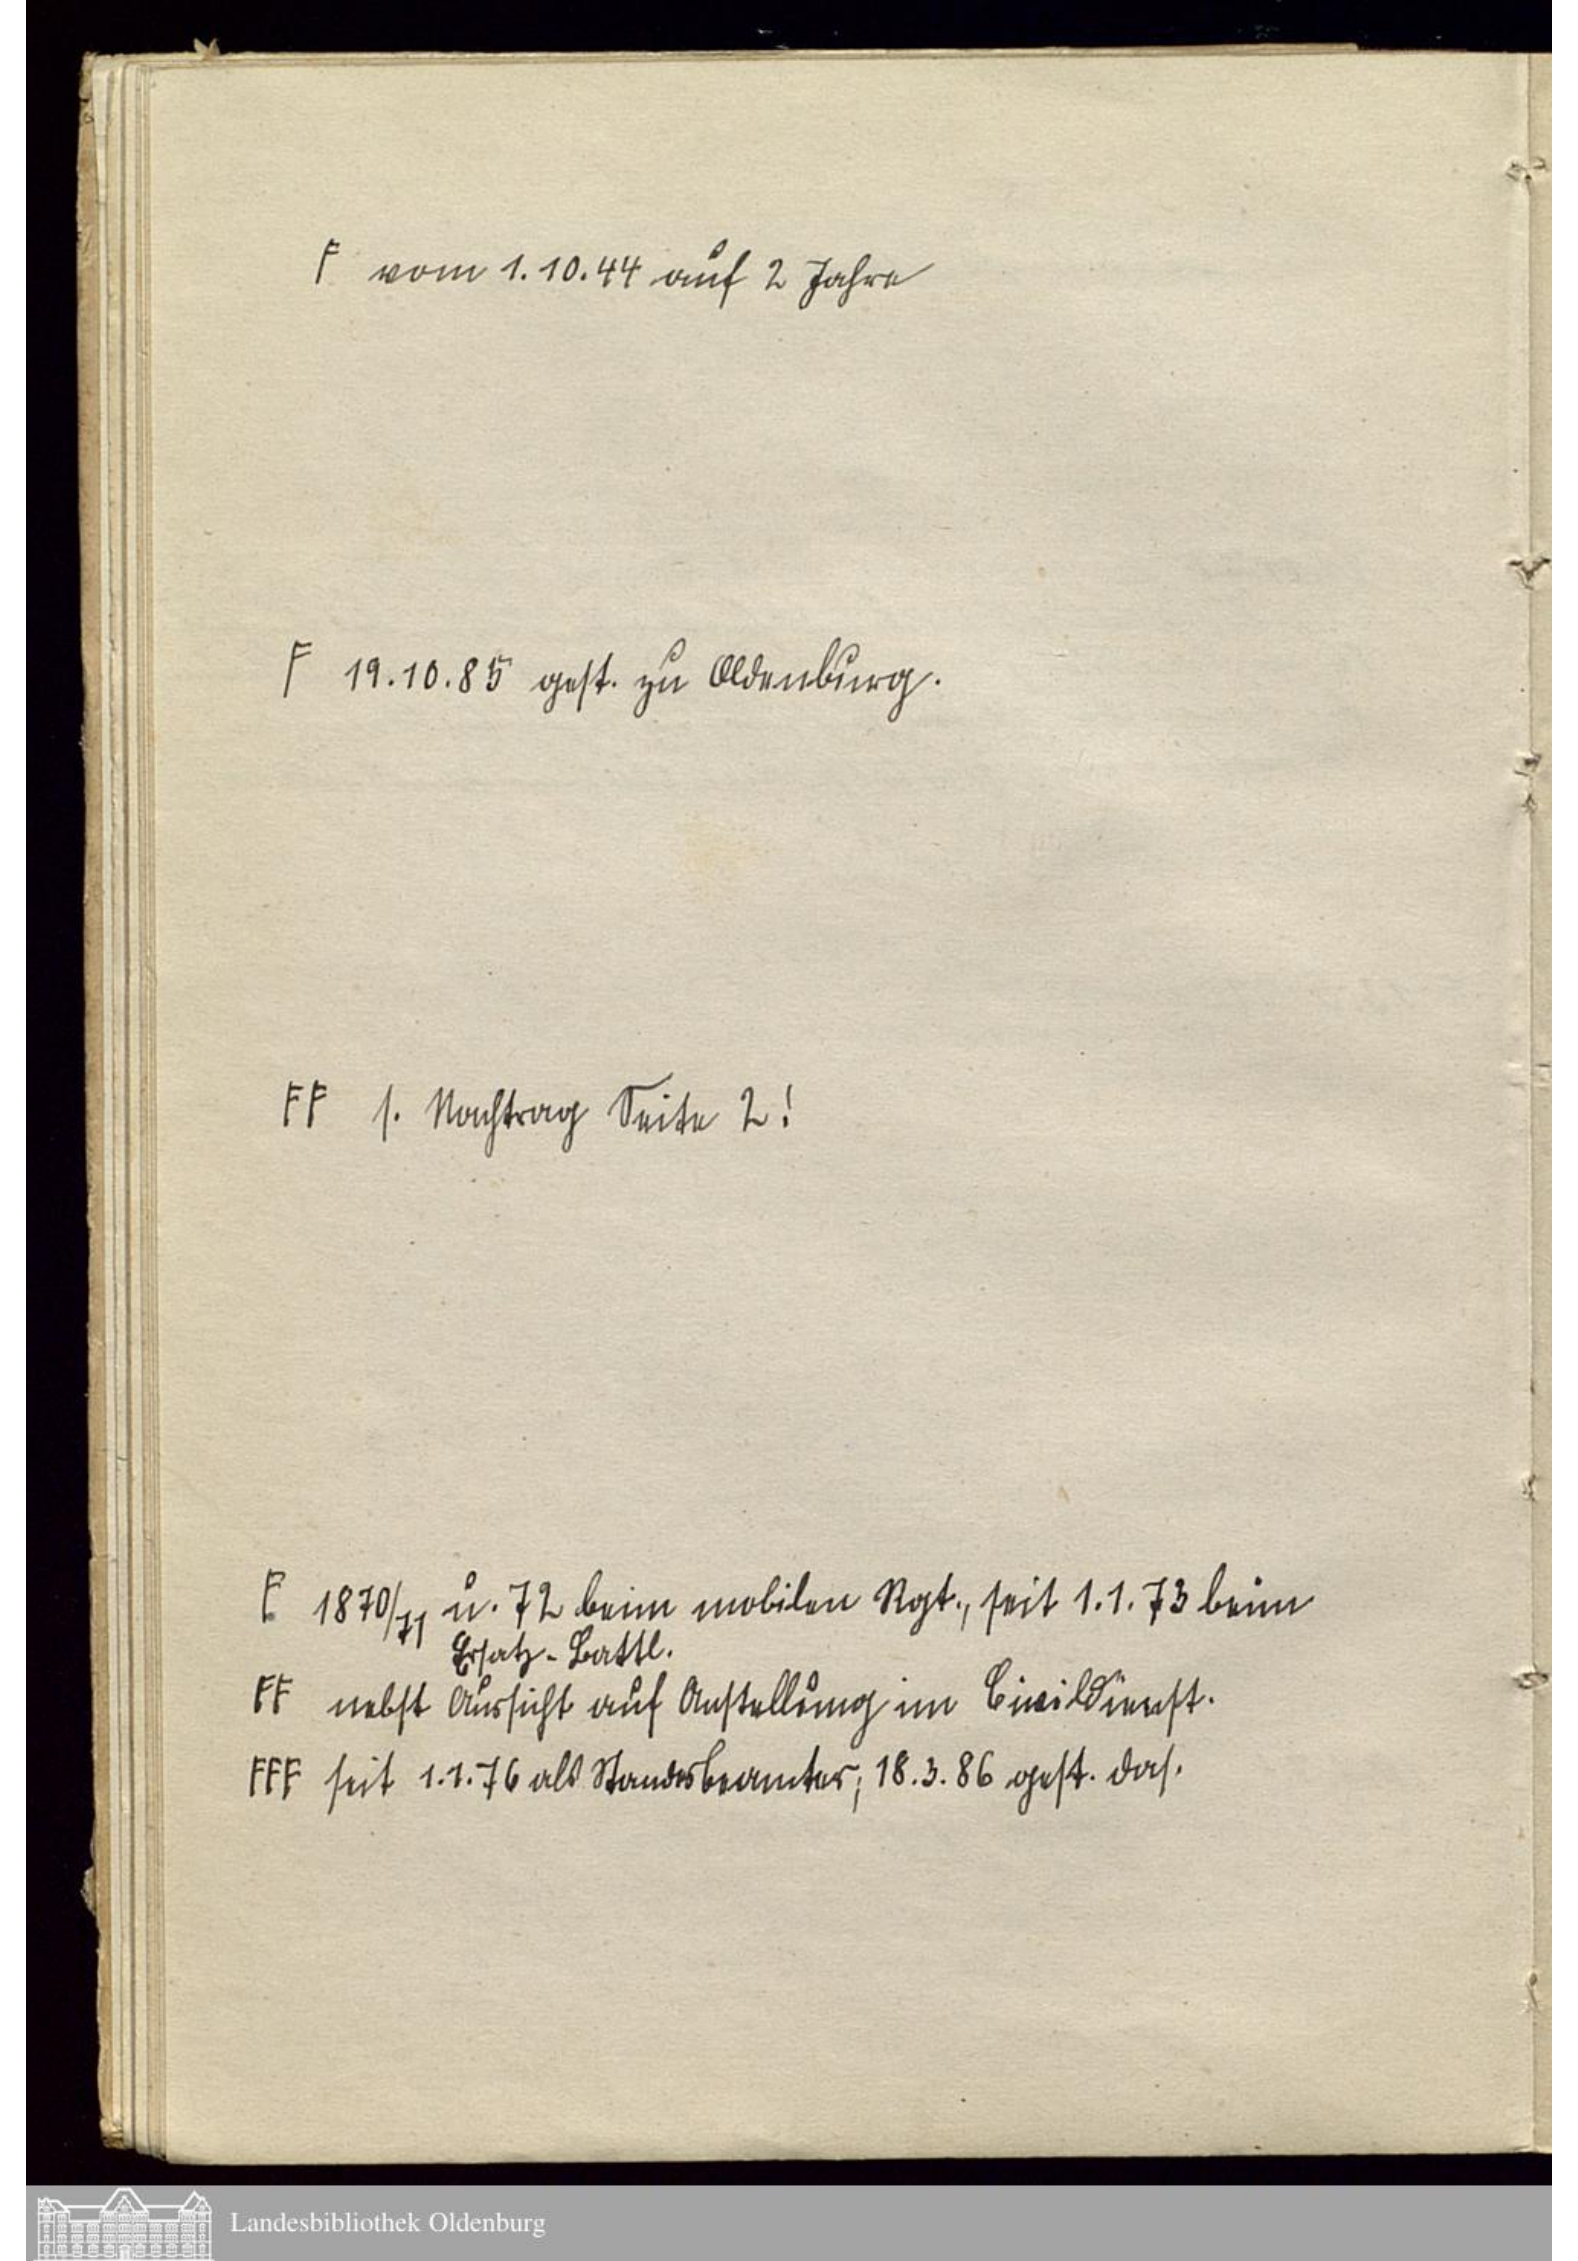 F vom 1.10.44 auf 2 Jahre
F 19.10.85 gest. zu Oldenburg.
FF s. Nachtrag Seite 2!
F 1870/71 u. 72 beim mobilen Rgt., seit 1.1.73 beim
Ersatz-Battl.
FF nebst Aussicht auf Anstellung im Civildienst.
FFF seit 1.1.76 als Standesbeamter; 18.3.86 gest. das.
Landesbibliothek Oldenburg